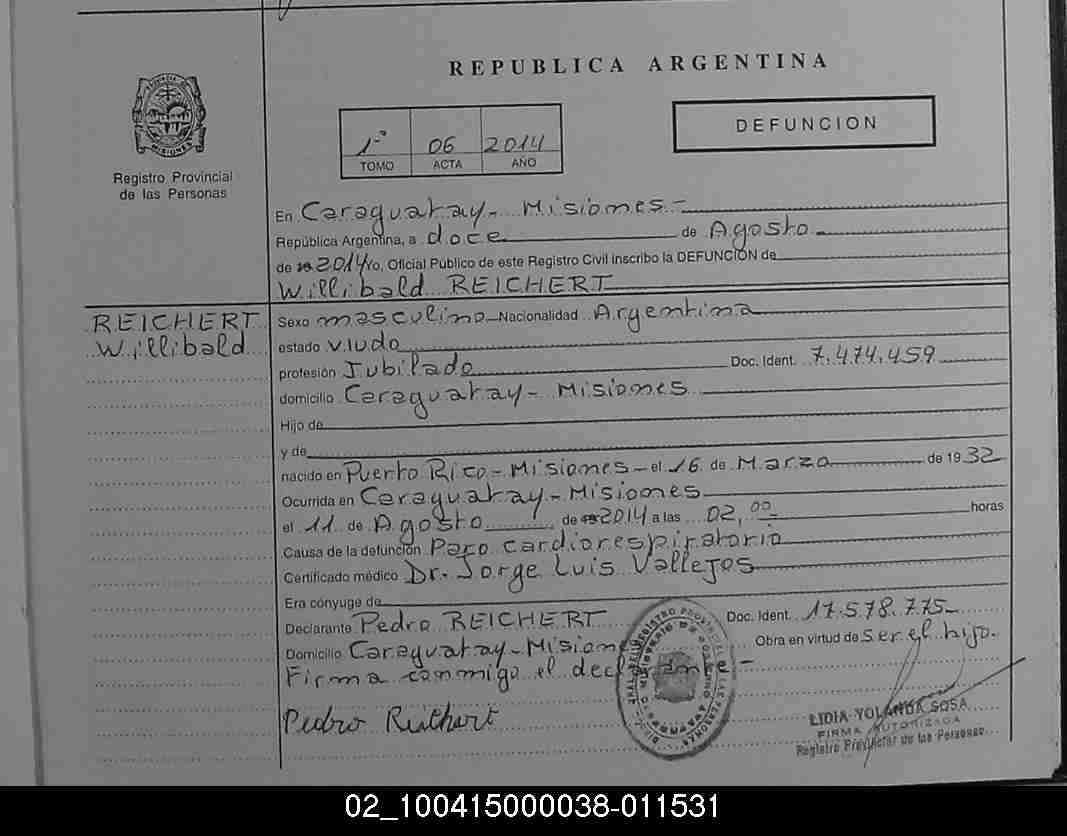 REPUBLICA ARGENTINA
PROVINCIA DE
MISIONES
Registro Provincial
de las Personas
1º 06 2014
TOMO ACTA AÑO
DEFUNCION
En Caraguatay - Misiones.-
República Argentina, a doce de Agosto
de 19 2014 Yo, Oficial Público de este Registro Civil inscribo la DEFUNCIÓN de
Willibald REICHERT
REICHERT
Willibald
Sexo masculino Nacionalidad Argentina
estado viudo
profesión Jubilado Doc. Ident. 7.474.459
domicilio Caraguatay - Misiones
Hijo de
y de
nacido en Puerto Rico - Misiones - el 16 de Marzo de 1932
Ocurrida en Caraguatay - Misiones
el 11 de Agosto de 19 2014 a las 02,00 horas
Causa de la defunción Paro cardiorespiratorio
Certificado médico Dr. Jorge Luis Vallejos
Era cónyuge de
Declarante Pedro REICHERT Doc. Ident. 17.578.775
Domicilio Caraguatay - Misiones Obra en virtud de Ser el hijo.
Firma conmigo el declarante -
Pedro Reichert
LIDIA YOLANDA SOSA
FIRMA AUTORIZADA
Registro Provincial de las Personas
02_100415000038-011531